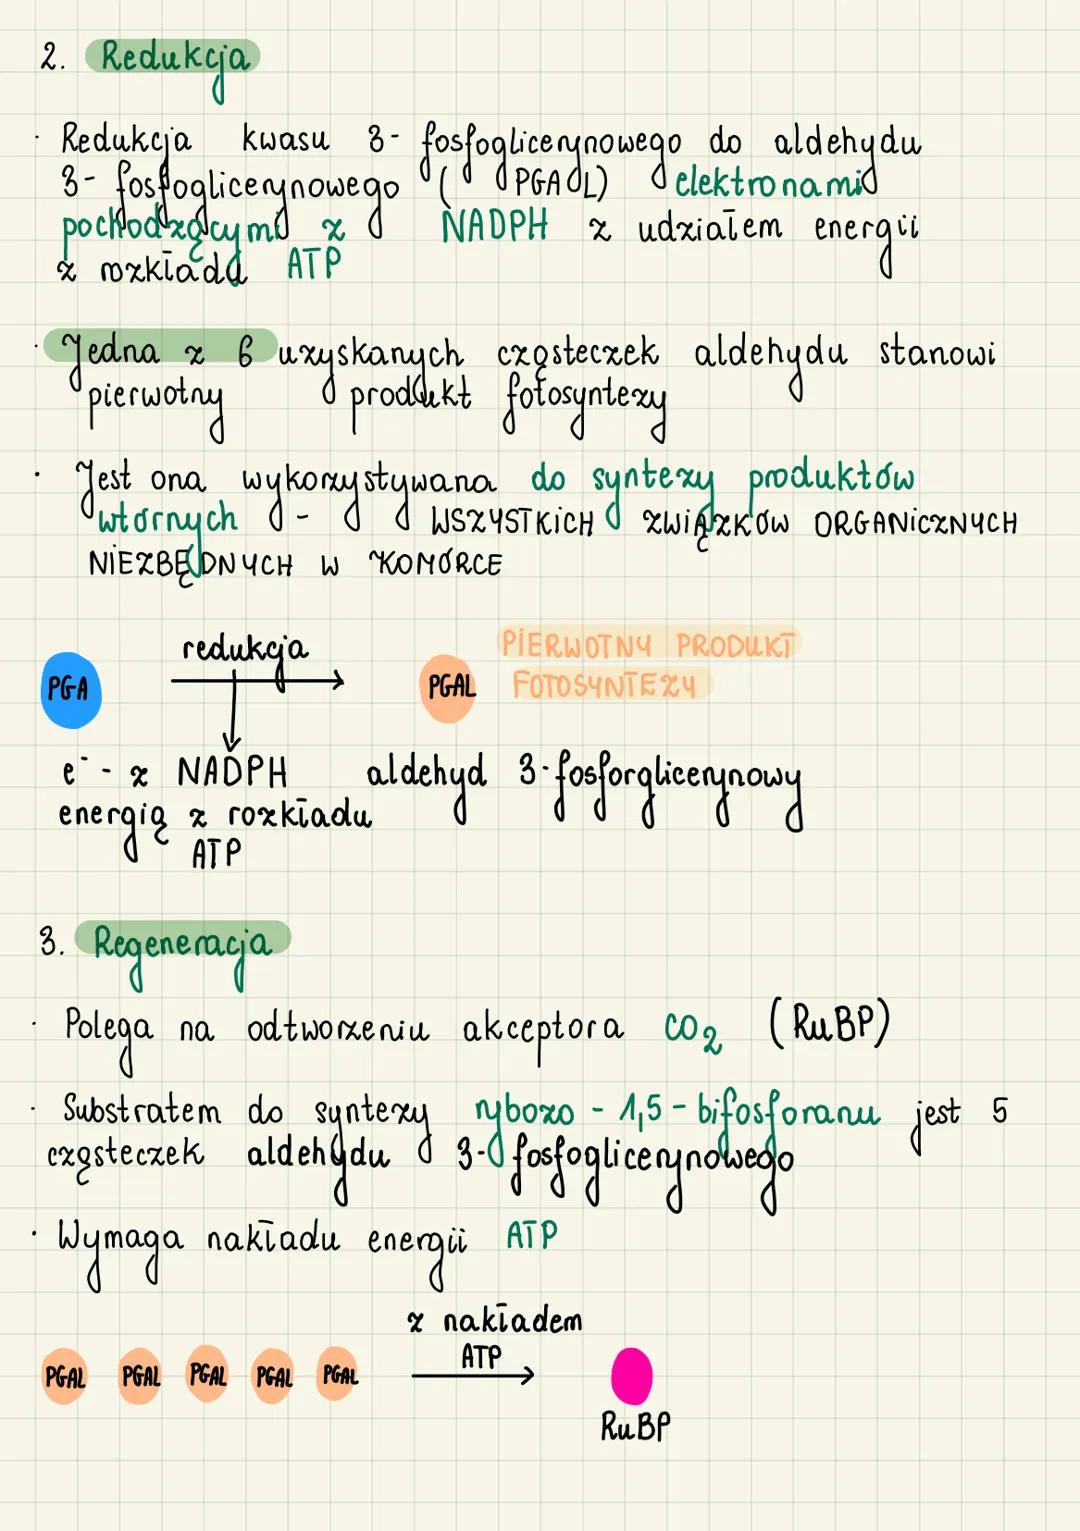 2. Redukcja
· Redukcja kwasu 3- fosfoglicerynowego do aldehydu
3- fosfoglicerynowego (PGAL) elektronami
pochodzącymi z NADPH z udziałem energii
z rozkładu ATP
· Jedna z 6 uzyskanych cząsteczek aldehydu stanowi
pierwotny produkt fotosyntezy
· Jest ona wykorzystywana do syntezy produktów
wtórnych - WSZYSTKICH ZWIĄZKÓW ORGANICZNYCH
NIEZBĘDNYCH W KOMÓRCE
redukcja
PIERWOTNY PRODUKT
FOTOSYNTEZY
PGA
PGAL
e⁻ - z NADPH
aldehyd 3-fosforglicerynowy
energią z rozkładu
ATP
3. Regeneracja
· Polega na odtworzeniu akceptora CO₂ (RuBP)
· Substratem do syntezy rybozo - 1,5 - bifosforanu jest 5
cząsteczek aldehydu 3-fosfoglicerynowego
· Wymaga nakładu energii ATP
z nakładem
ATP
PGAL PGAL PGAL PGAL PGAL
RuBP